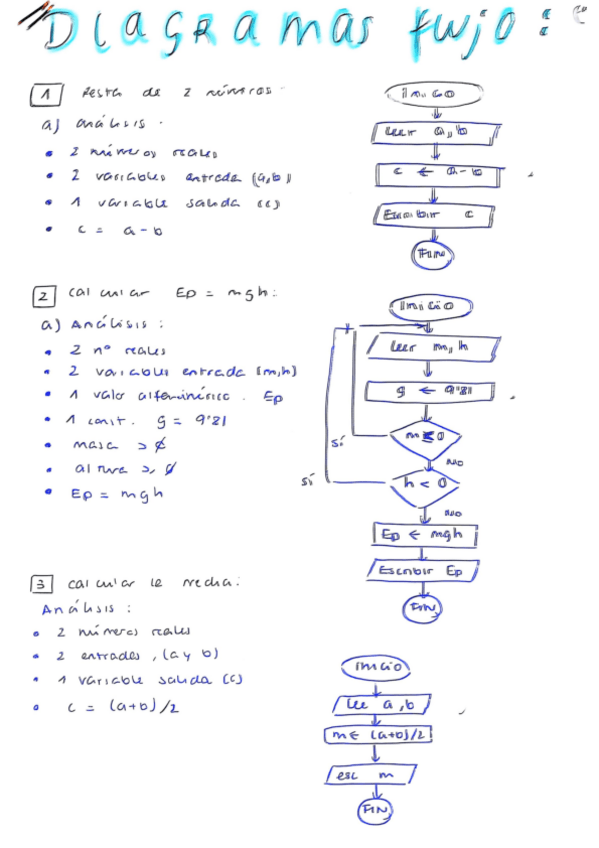 Diagramas flujo:
1 Resta de 2 números.
a) análisis.
• 2 números reales
• 2 variables entrada (a,b)
• 1 variable salida (c)
• c = a - b
Inicio
Leer a, b
c ← a - b
Escribir c
Fin
2 calcular Ep = mgh:
a) Análisis:
• 2 nº reales
• 2 variables entrada (m,h)
• 1 valor alfanumérico. Ep
• 1 const. g = 9'81
• masa > 0
• altura ≥ 0
• Ep = mgh
Inicio
leer m, h
g ← 9'81
m ≤ 0
sí
NO
h < 0
sí
NO
Ep ← mgh
Escribir Ep
FIN
3 calcular la media:
Análisis:
• 2 números reales
• 2 entradas, (a y b)
• 1 variable salida (c)
• c = (a+b)/2
inicio
Lee a, b
m ← (a+b)/2
esc m
FIN